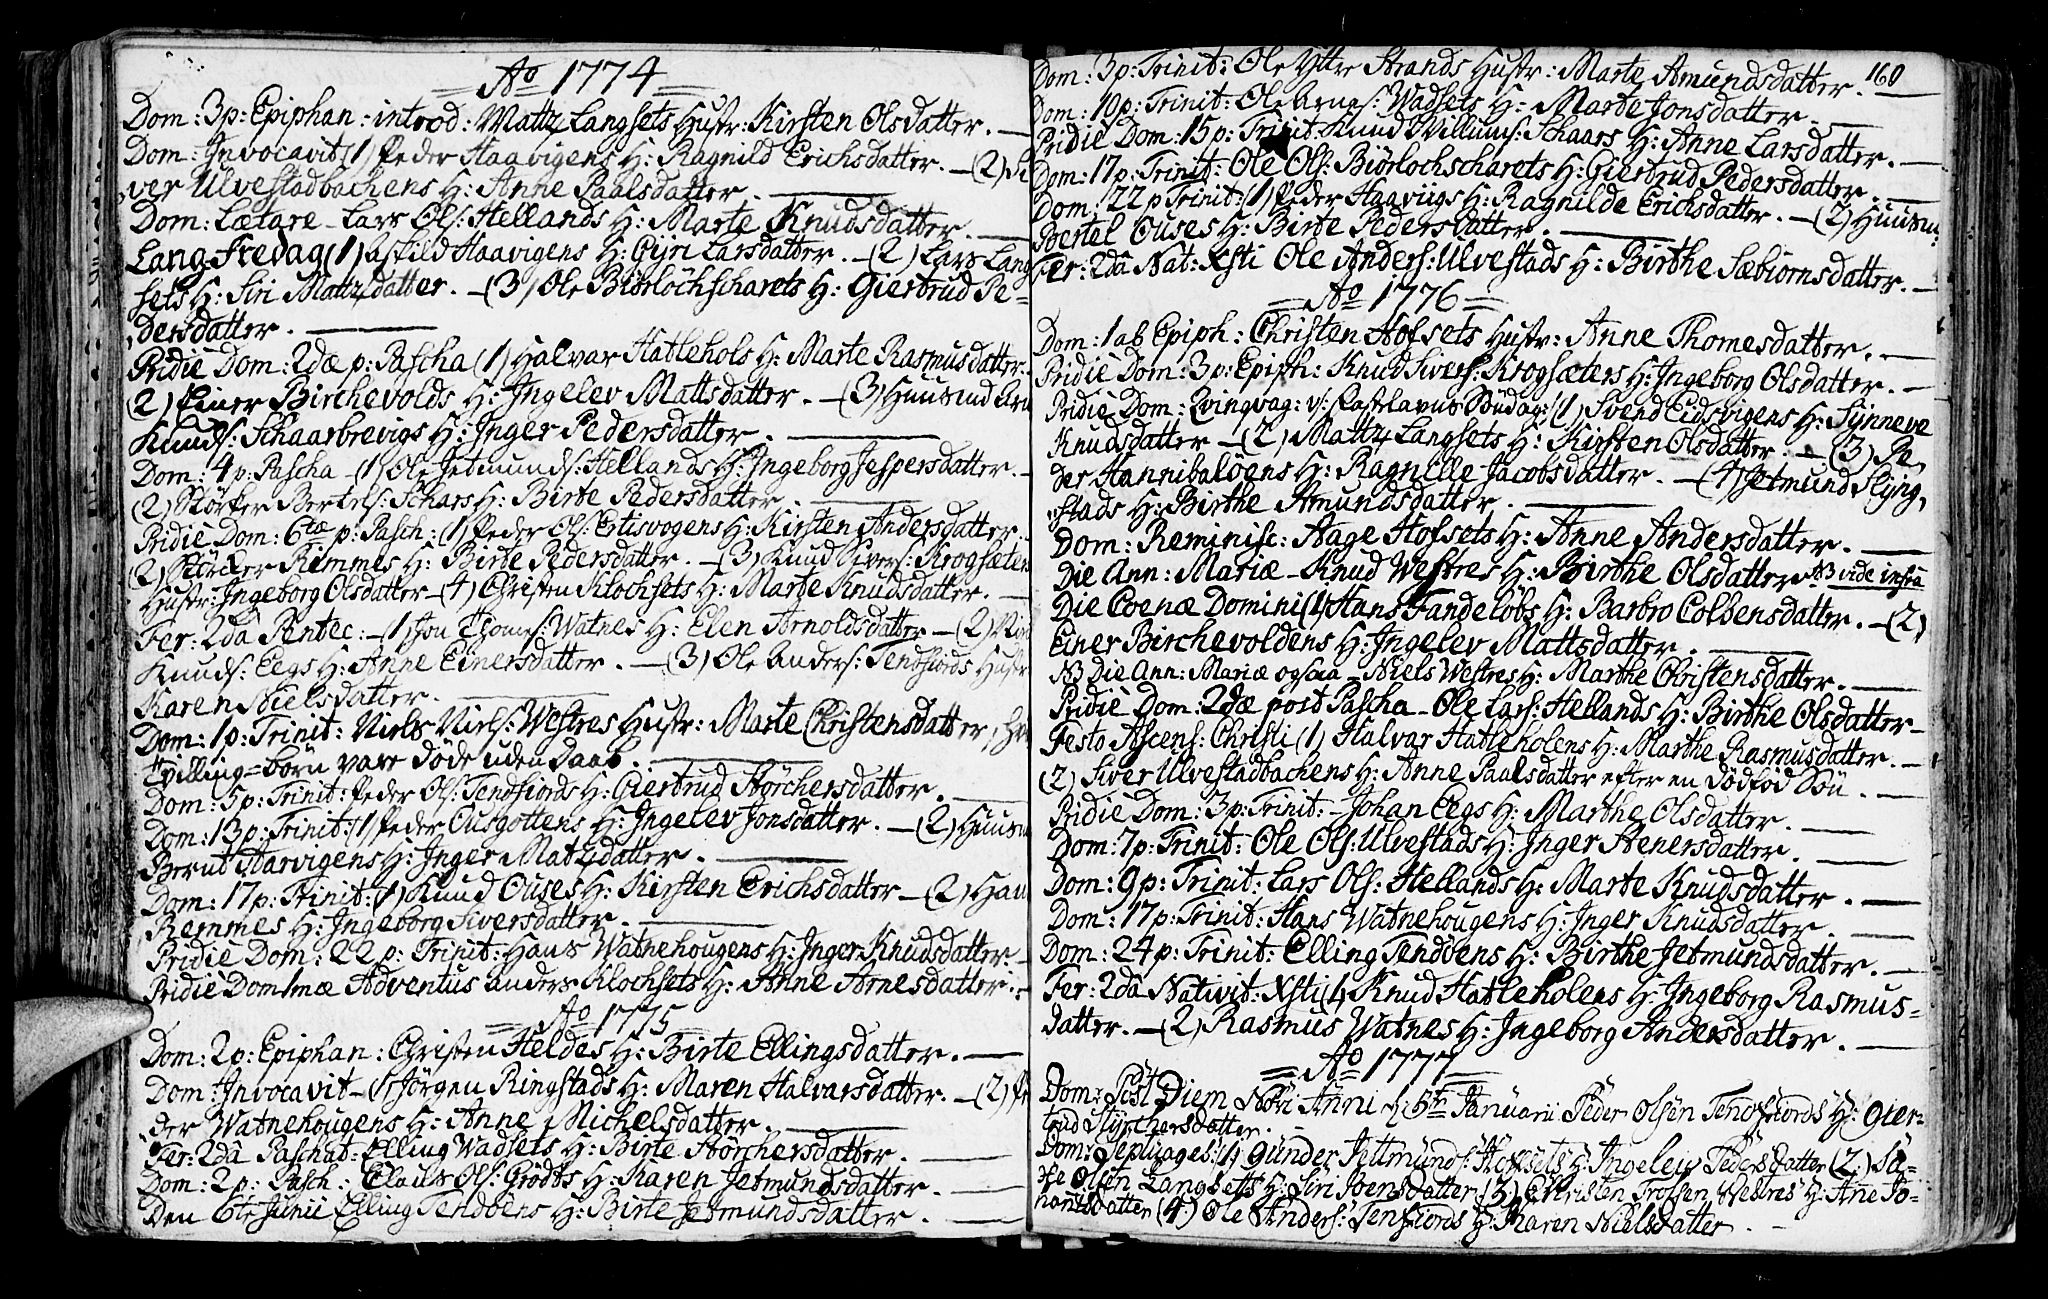 Ao 1774
Dom: 3 p: Epiphan: introd: Mattz Langsets Hustr: Kirsten Olsdatter.
Dom: Invocavit (1) Peder Haavigens H: Ragnild Erichsdatter. — (2) Si
ver Ulvestadbachens H: Anne Paalsdatter.
Dom: Lætare — Lars Ols: Hellands H: Marte Knudsdatter.
Langfredag (1) Asfild Haavigens H: Gyri Larsdatter. — (2) Lars Lang
sets H: Siri Mattzdatter. — (3) Ole Biörlochscharets H: Giertrud Pe-
dersdatter.
Pridie Dom: 2dæ p: Pascha (1) Halvar Hatlehols H: Marte Rasmusdatter.
(2) Einer Birchevolds H: Ingelev Mattsdatter. — (3) Huusmd
Knuds: Schaarbrevigs H: Inger Pedersdatter.
Dom: 4 p: Pascha — (1) Ole Jetmunds: Hellands H: Ingeborg Jespersdatter.
(2) Störker Bertels: Schars H: Birte Pedersdatter.
Pridie Dom: 6tæ p: Pasch: (1) Peder Ols: H: Kirsten Andersdatter.
2) Störcker Remmes H: Birte Pedersdatter. — (3) Knud Sivers: Krogsæters
Hustr: Ingeborg Olsdatter — (4) Christen Klochsets H: Marte Knudsdatter.
Fer: 2dâ Pentec: — (1) Jon Thomes: Watnes H: Elen Arnoldsdatter — (2)
Knuds: Eegs H: Anne Einersdatter. — (3) Ole Anders: Tendfiords Hustr
Karen Nielsdatter.
Dom: 1 p: Trinit: Niels Niels: Westres Hustr: Marte Christensdatter,
Tvilling-börn vare döde uden Daab.
Dom: 5 p: Trinit: Peder Ols: Tendfiords H: Giertrud Störchersdatter.
Dom: 13 p: Trinit: (1) Peder Ousgottens H: Ingelev Jonsdatter. — (2) Huusm
Bernt Aarvigens H: Inger Matzdatter.
Dom: 17 p: Trinit: (1) Knud Ouses H: Kirsten Erichsdatter — (2) Han
Remmes H: Ingeborg Siversdatter.
Pridie Dom: 22 p: Trinit: Hans Watnehougens H: Inger Knudsdatter.
Pridie Dom 1mæ Adventus Anders Klochsets H: Anne Arnesdatter.
Ao 1775
Dom: 2 p: Epiphan: Christen Heldes H: Birte Ellingsdatter.
Dom: Invocavit — (1) Jörgen Ringstads H: Maren Halvarsdatter. — (2) Pe
der Watnehougens H: Anne Michelsdatter.
Fer: 2dâ Paschat: Elling Wadsets H: Birte Störchersdatter.
Dom: 2 p: Pasch: Claus Ols: Grödts H: Karen Jetmundsdatter.
Den 6te Junii Elling Tendöens H: Birte Jetmundsdatter.
160
Dom: 3 p: Trinit: Ole Yttre Strands Hustr: Marte Amundsdatter.
Dom: 10 p: Trinit: Ole Arnes: Wadsets H: Marte Jonsdatter.
Pridie Dom: 15 p: Trinit: Knud Willums: Schaars H: Anne Larsdatter.
Dom: 17 p: Trinit: Ole Ols: Biörlochscharets H: Giertrud Pedersdatter.
Dom: 22 p Trinit: (1) Peder Haaviigs H: Ragnilde Erichsdatter. — (2) Huusm:
Bertel Ouses H: Birte Pedersdatter.
Fer: 2dâ Nat: Xsti Ole Anders: Ulvestads H: Birthe Sæbiornsdatter.
Ao 1776
Dom: 1 ab Epiph: Christen Hofsets Hustr: Anne Thomesdatter.
Pridie Dom: 3 p: Epiph: Knud Sivers: Krogsæters H: Ingeborg Olsdatter.
Pridie Dom: Qvinqvag: v: Fastelavns Söndag: (1) Svend Eidsvigens H: Synneve
Knudsdatter — (2) Mattz Langsets H: Kirsten Olsdatter. — (3) Pe,
der Hannibalöens H: Ragnille Jacobsdatter. — (4) Jetmund Slyng,
stads H: Birthe Amundsdatter.
Dom: Reminisc: Aage Hofsets H: Anne Andersdatter.
Die Ann: Mariæ — Knud Westres H: Birthe Olsdatter. NB vide infra
Die Coenæ Domini (1) Hans Fandelöbs H: Barbro Colbensdatter. — (2)
Einer Birchevoldens H: Ingelev Mattsdatter.
NB Die Ann: Mariæ ogsaa — Niels Westres H: Marthe Christensdatter.
Pridie Dom: 2dæ post Pascha — Ole Lars: Hellands H: Birthe Olsdatter —
Festo Ascens: Christi (1) Halvar Hatleholens H: Marthe Rasmusdatter.
(2) Siver Ulvestadbachens H: Anne Paalsdatter efter en dödfød Sön.
Pridie Dom: 3 p: Trinit: — Johan Eegs H: Marthe Olsdatter.
Dom: 7 p: Trinit: Ole Ols: Ulvestads H: Inger Stenersdatter.
Dom: 9 p: Trinit: Lars Ols: Hellands H: Marte Knudsdatter.
Dom: 17 p: Trinit: Hans Watnehougens H: Inger Knudsdatter.
Dom: 24 p: Trinit: Elling Tendöens H: Birthe Jetmundsdatter.
Fer: 2dâ Nativit: Xsti (1) Knud Hatleholens H: Ingeborg Rasmus-
datter. — (2) Rasmus Watnes H: Ingeborg Andersdatter.
Ao 1777
Dom: Post Diem Novi Anni d: 5te Januarii Peder Olsen Tenfiords H: Gier-
trud Styrchersdatter.
Dom: Septuages: (1) Gunder Jettmunds: Hofsets H: Ingelev Pedersdatter (2)
Olsen Langsetts H: Siri Joensdatter (3) Christen Trofsen Westres H: Ane Jo-
nansdatter (4) Ole Anders: Tenfiords H: Karen Nielsdatter